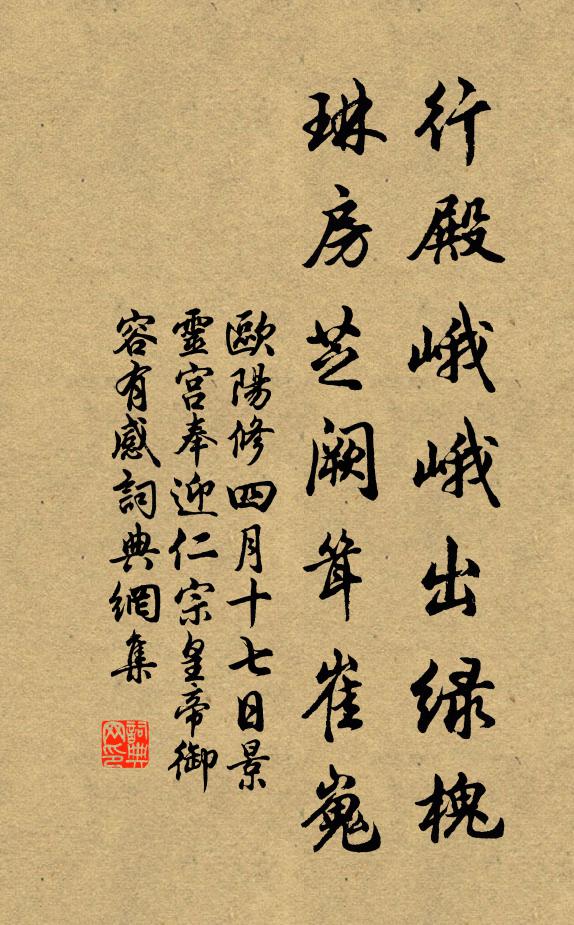 行殿峨峨出绿槐
琳房芝阙耸崔嵬
歐陽修四月十七日景
靈宮奉迎仁宗皇帝御
容有感詞典網集
詞典网印